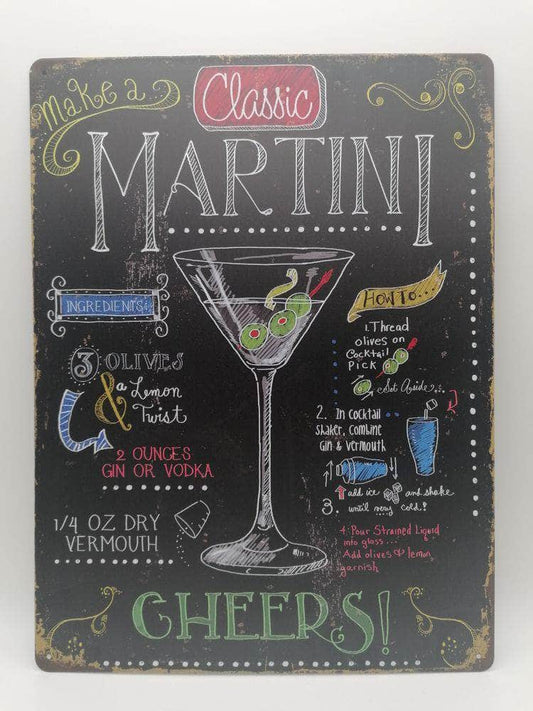 Make a
Classic
MARTINI
INGREDIENTS:
3 OLIVES
& a Lemon
Twist
2 OUNCES
GIN OR VODKA
1/4 OZ DRY
VERMOUTH
HOW TO...
1. Thread
olives on
Cocktail
Pick
Set Aside...
2. In cocktail
shaker, combine
Gin & vermouth
add ice and shake
3. until very cold!
4. Pour Strained Liquid
into glass...
Add olives & lemon
garnish
CHEERS!